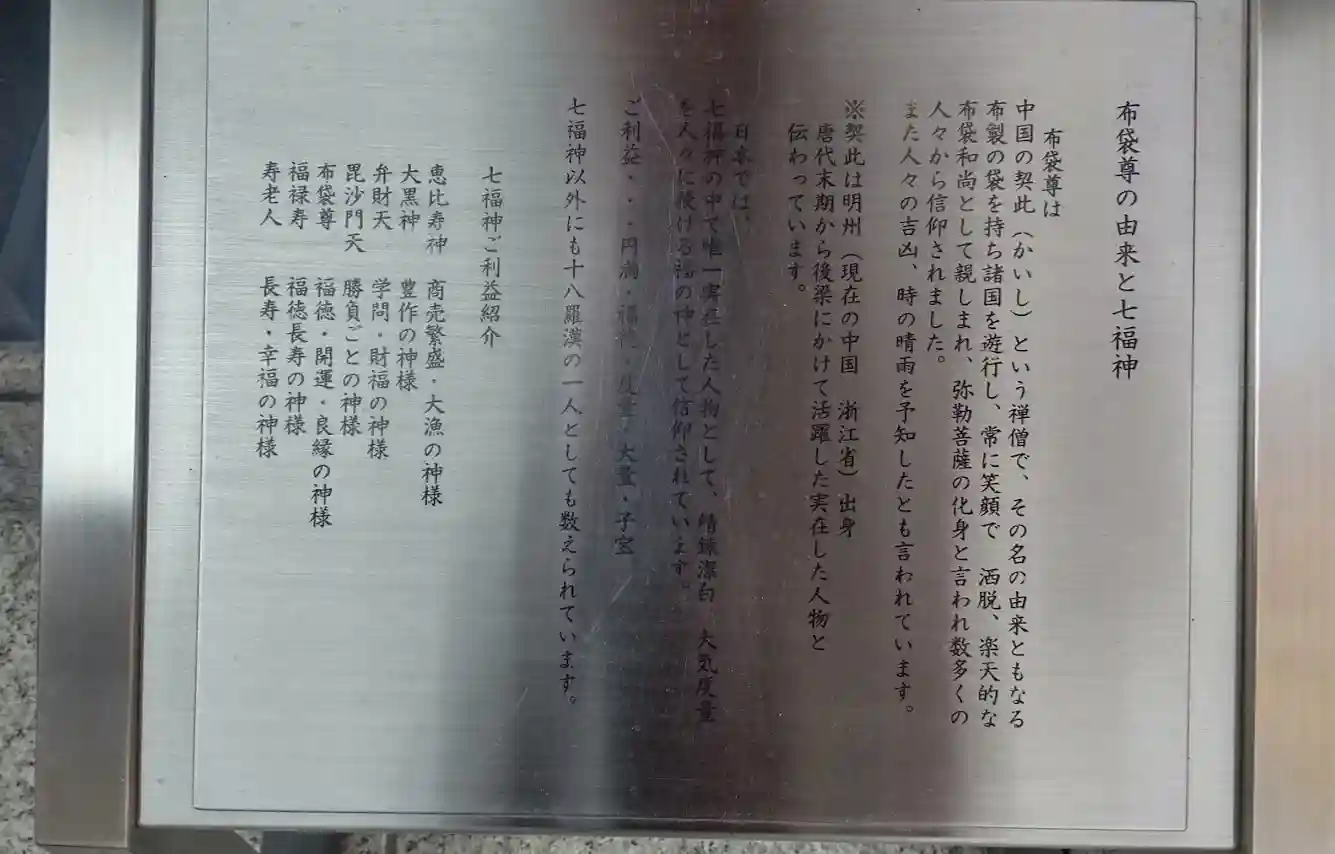 布袋尊の由来と七福神
布袋尊は
中国の契此（かいし）という禅僧で、その名の由来ともなる
布製の袋を持ち諸国を遊行し、常に笑顔で　洒脱、楽天的な
布袋和尚として親しまれ、弥勒菩薩の化身と言われ数多くの
人々から信仰されました。
また人々の吉凶、時の晴雨を予知したとも言われています。
※契此は明州（現在の中国　浙江省）出身
唐代末期から後梁にかけて活躍した実在した人物と
伝わっています。
日本では、
七福神の中で唯一実在した人物として、清錬潔白　大気度量
を人々に授ける福の神として信仰されています。
ご利益・・・円満・福徳・度量・大量・子宝
七福神以外にも十八羅漢の一人としても数えられています。
七福神ご利益紹介
恵比寿神　商売繁盛・大漁の神様
大黒神　豊作の神様
弁財天　学問・財福の神様
毘沙門天　勝負ごとの神様
布袋尊　福徳・開運・良縁の神様
福禄寿　福徳長寿の神様
寿老人　長寿・幸福の神様